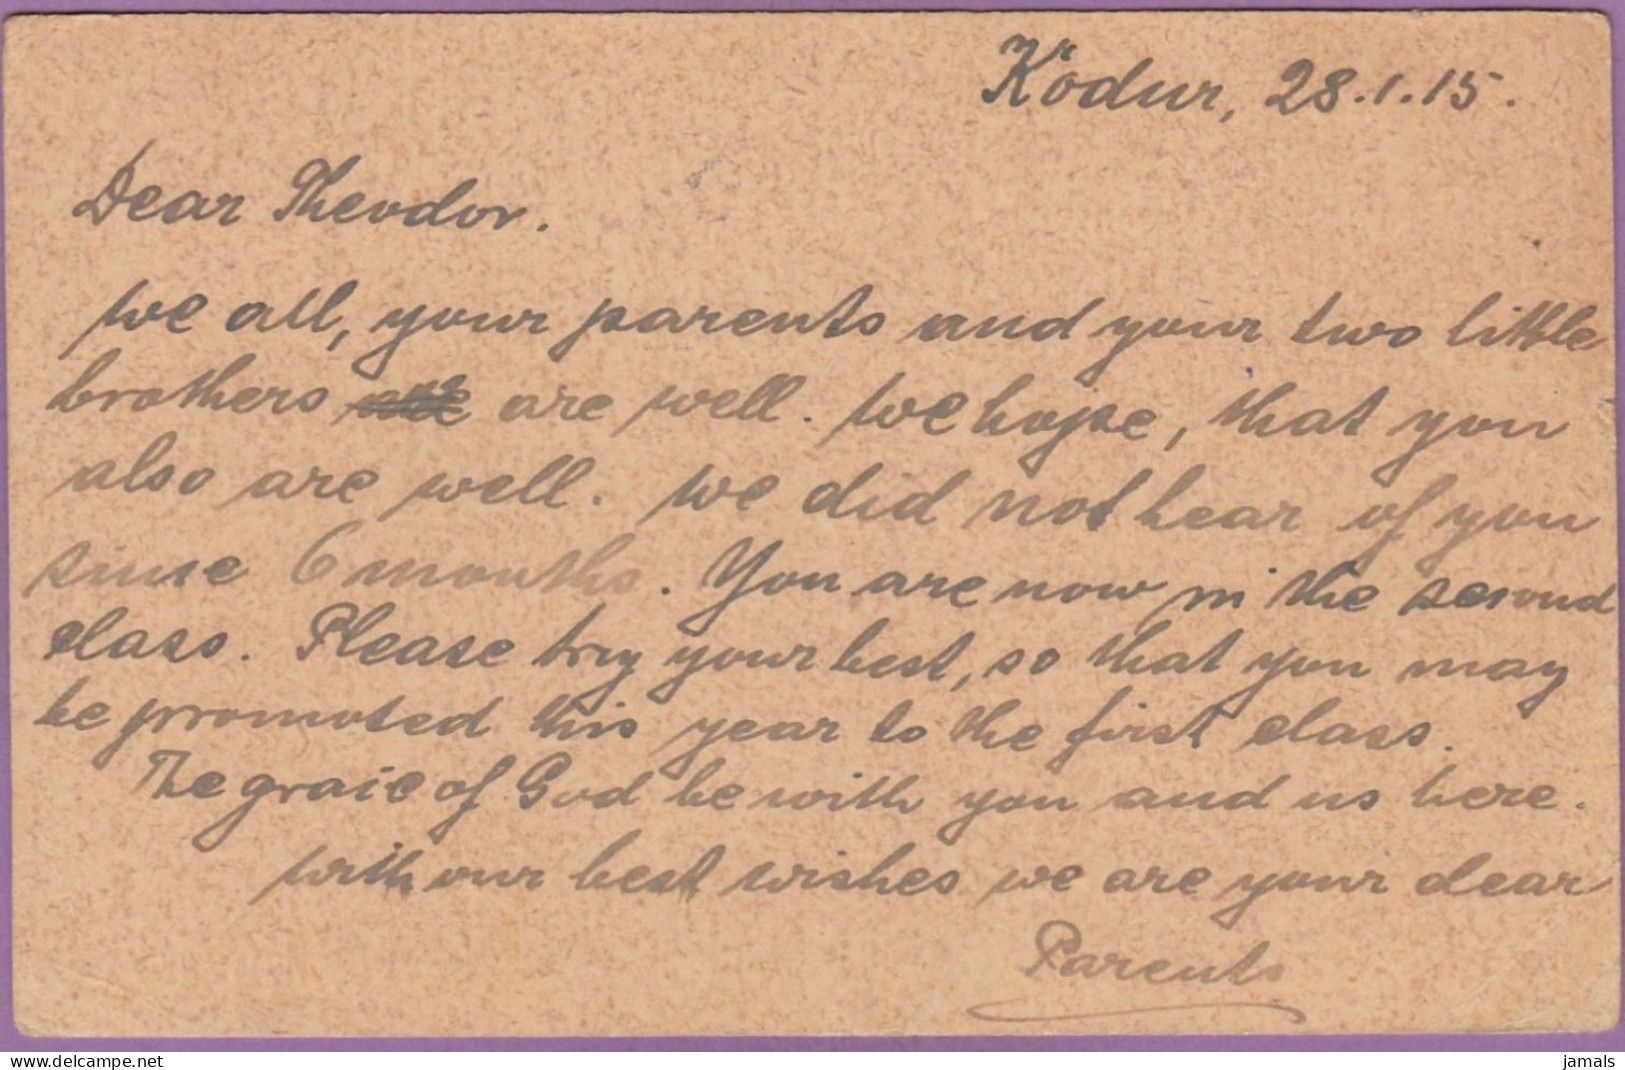 Ködur, 28.1.15.
Dear Theodor.
We all, your parents and your two little
brothers are well. We hope, that you
also are well. We did not hear of you
since 6 months. You are now in the second
class. Please try your best, so that you may
be promoted this year to the first class.
The graice of God be with you and us here.
With our best wishes we are your dear
Parents
www.delcampe.net
jamals